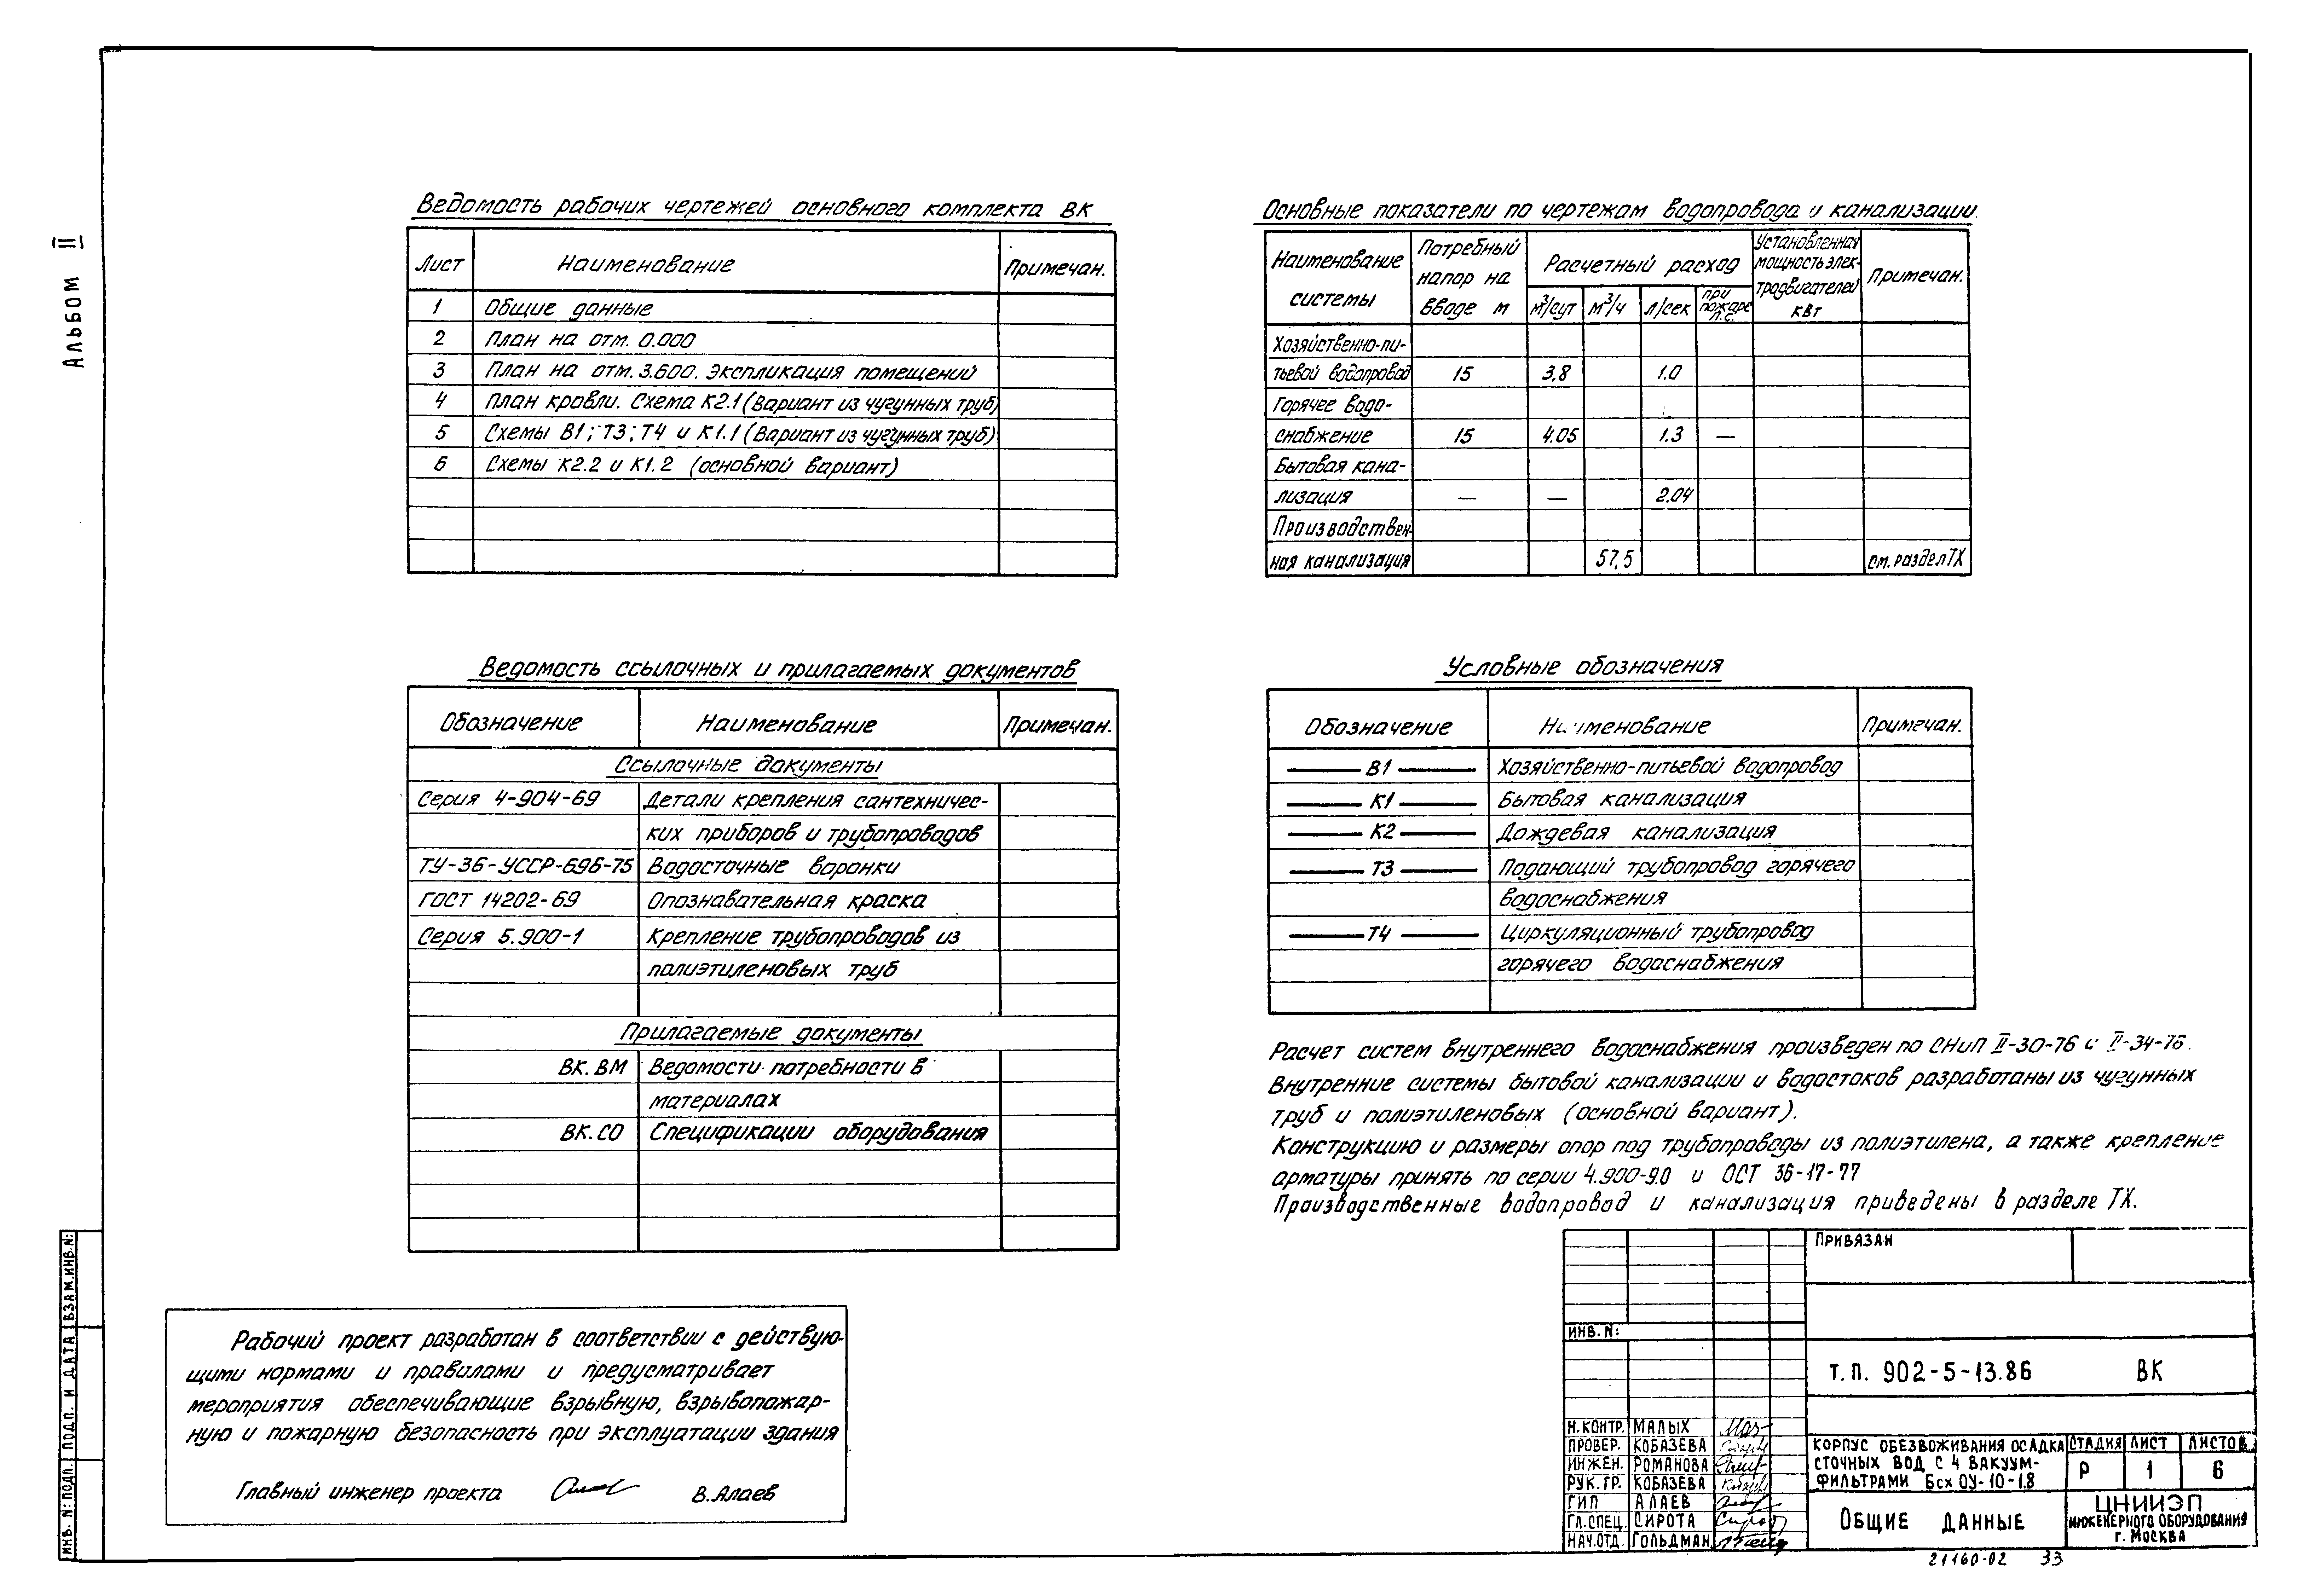 Альбом II
Ведомость рабочих чертежей основного комплекта ВК
Лист Наименование Примечан.
1 Общие данные
2 План на отм. 0.000
3 План на отм. 3.600. Экспликация помещений
4 План кровли. Схема К2.1 (Вариант из чугунных труб)
5 Схемы В1; Т3; Т4 и К1.1 (Вариант из чугунных труб)
6 Схемы К2.2 и К1.2 (основной вариант)
Основные показатели по чертежам водопровода и канализации.
Наименование системы
Потребный напор на вводе м
Расчетный расход
м³/сут м³/ч л/сек при пожаре л.с.
Установленная мощность элек-тродвигателей квт
Примечан.
Хозяйственно-пи-
тьевой водопровод 15 3,8 1.0
Горячее водо-
снабжение 15 4.05 1.3 —
Бытовая кана-
лизация — — 2.04
Производствен-
ная канализация 57,5 см. раздел ТХ
Ведомость ссылочных и прилагаемых документов
Обозначение Наименование Примечан.
Ссылочные документы
Серия 4-904-69 Детали крепления сантехничес-
ких приборов и трубопроводов
ТУ-36-УССР-696-75 Водосточные воронки
ГОСТ 14202-69 Опознавательная краска
Серия 5.900-1 Крепление трубопроводов из
полиэтиленовых труб
Прилагаемые документы
ВК. ВМ Ведомости потребности в
материалах
ВК. СО Спецификации оборудования
Условные обозначения
Обозначение Наименование Примечан.
В1 Хозяйственно-питьевой водопровод
К1 Бытовая канализация
К2 Дождевая канализация
Т3 Подающий трубопровод горячего
водоснабжения
Т4 Циркуляционный трубопровод
горячего водоснабжения
Расчет систем внутреннего водоснабжения произведен по СНиП II-30-76 и II-34-76.
Внутренние системы бытовой канализации и водостоков разработаны из чугунных
труб и полиэтиленовых (основной вариант).
Конструкцию и размеры опор под трубопроводы из полиэтилена, а также крепление
арматуры принять по серии 4.900-9.0 и ОСТ 36-17-77
Производственные водопровод и канализация приведены в разделе ТХ.
Рабочий проект разработан в соответствии с действую-
щими нормами и правилами и предусматривает
мероприятия обеспечивающие взрывную, взрывопожар-
ную и пожарную безопасность при эксплуатации здания
Главный инженер проекта В. Алаев
ИНВ. N: ПОДЛ. ПОДП. И ДАТА ВЗАМ.ИНВ.N:
ПРИВЯЗАН
ИНВ. N:
Т. П. 902-5-13.86 ВК
Н.КОНТР. МАЛЫХ
ПРОВЕР. КОБАЗЕВА
ИНЖЕН. РОМАНОВА
РУК. ГР. КОБАЗЕВА
ГИП АЛАЕВ
ГЛ.СПЕЦ. СИРОТА
НАЧ.ОТД. ГОЛЬДМАН
КОРПУС ОБЕЗВОЖИВАНИЯ ОСАДКА
СТОЧНЫХ ВОД С 4 ВАКУУМ-
ФИЛЬТРАМИ Бсх ОУ-10-1.8
СТАДИЯ ЛИСТ ЛИСТОВ
Р 1 6
ОБЩИЕ ДАННЫЕ
ЦНИИЭП
ИНЖЕНЕРНОГО ОБОРУДОВАНИЯ
г. МОСКВА
21160-02 33